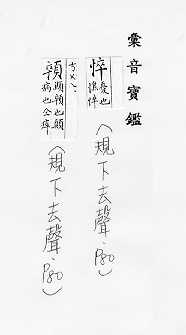 彙音寶鑑
悴 憂也
憔悴
（規下去聲．P80）
ㄘㄨㄟˋ
顇 顦顇也
病也仝瘁
（規下去聲．P80）